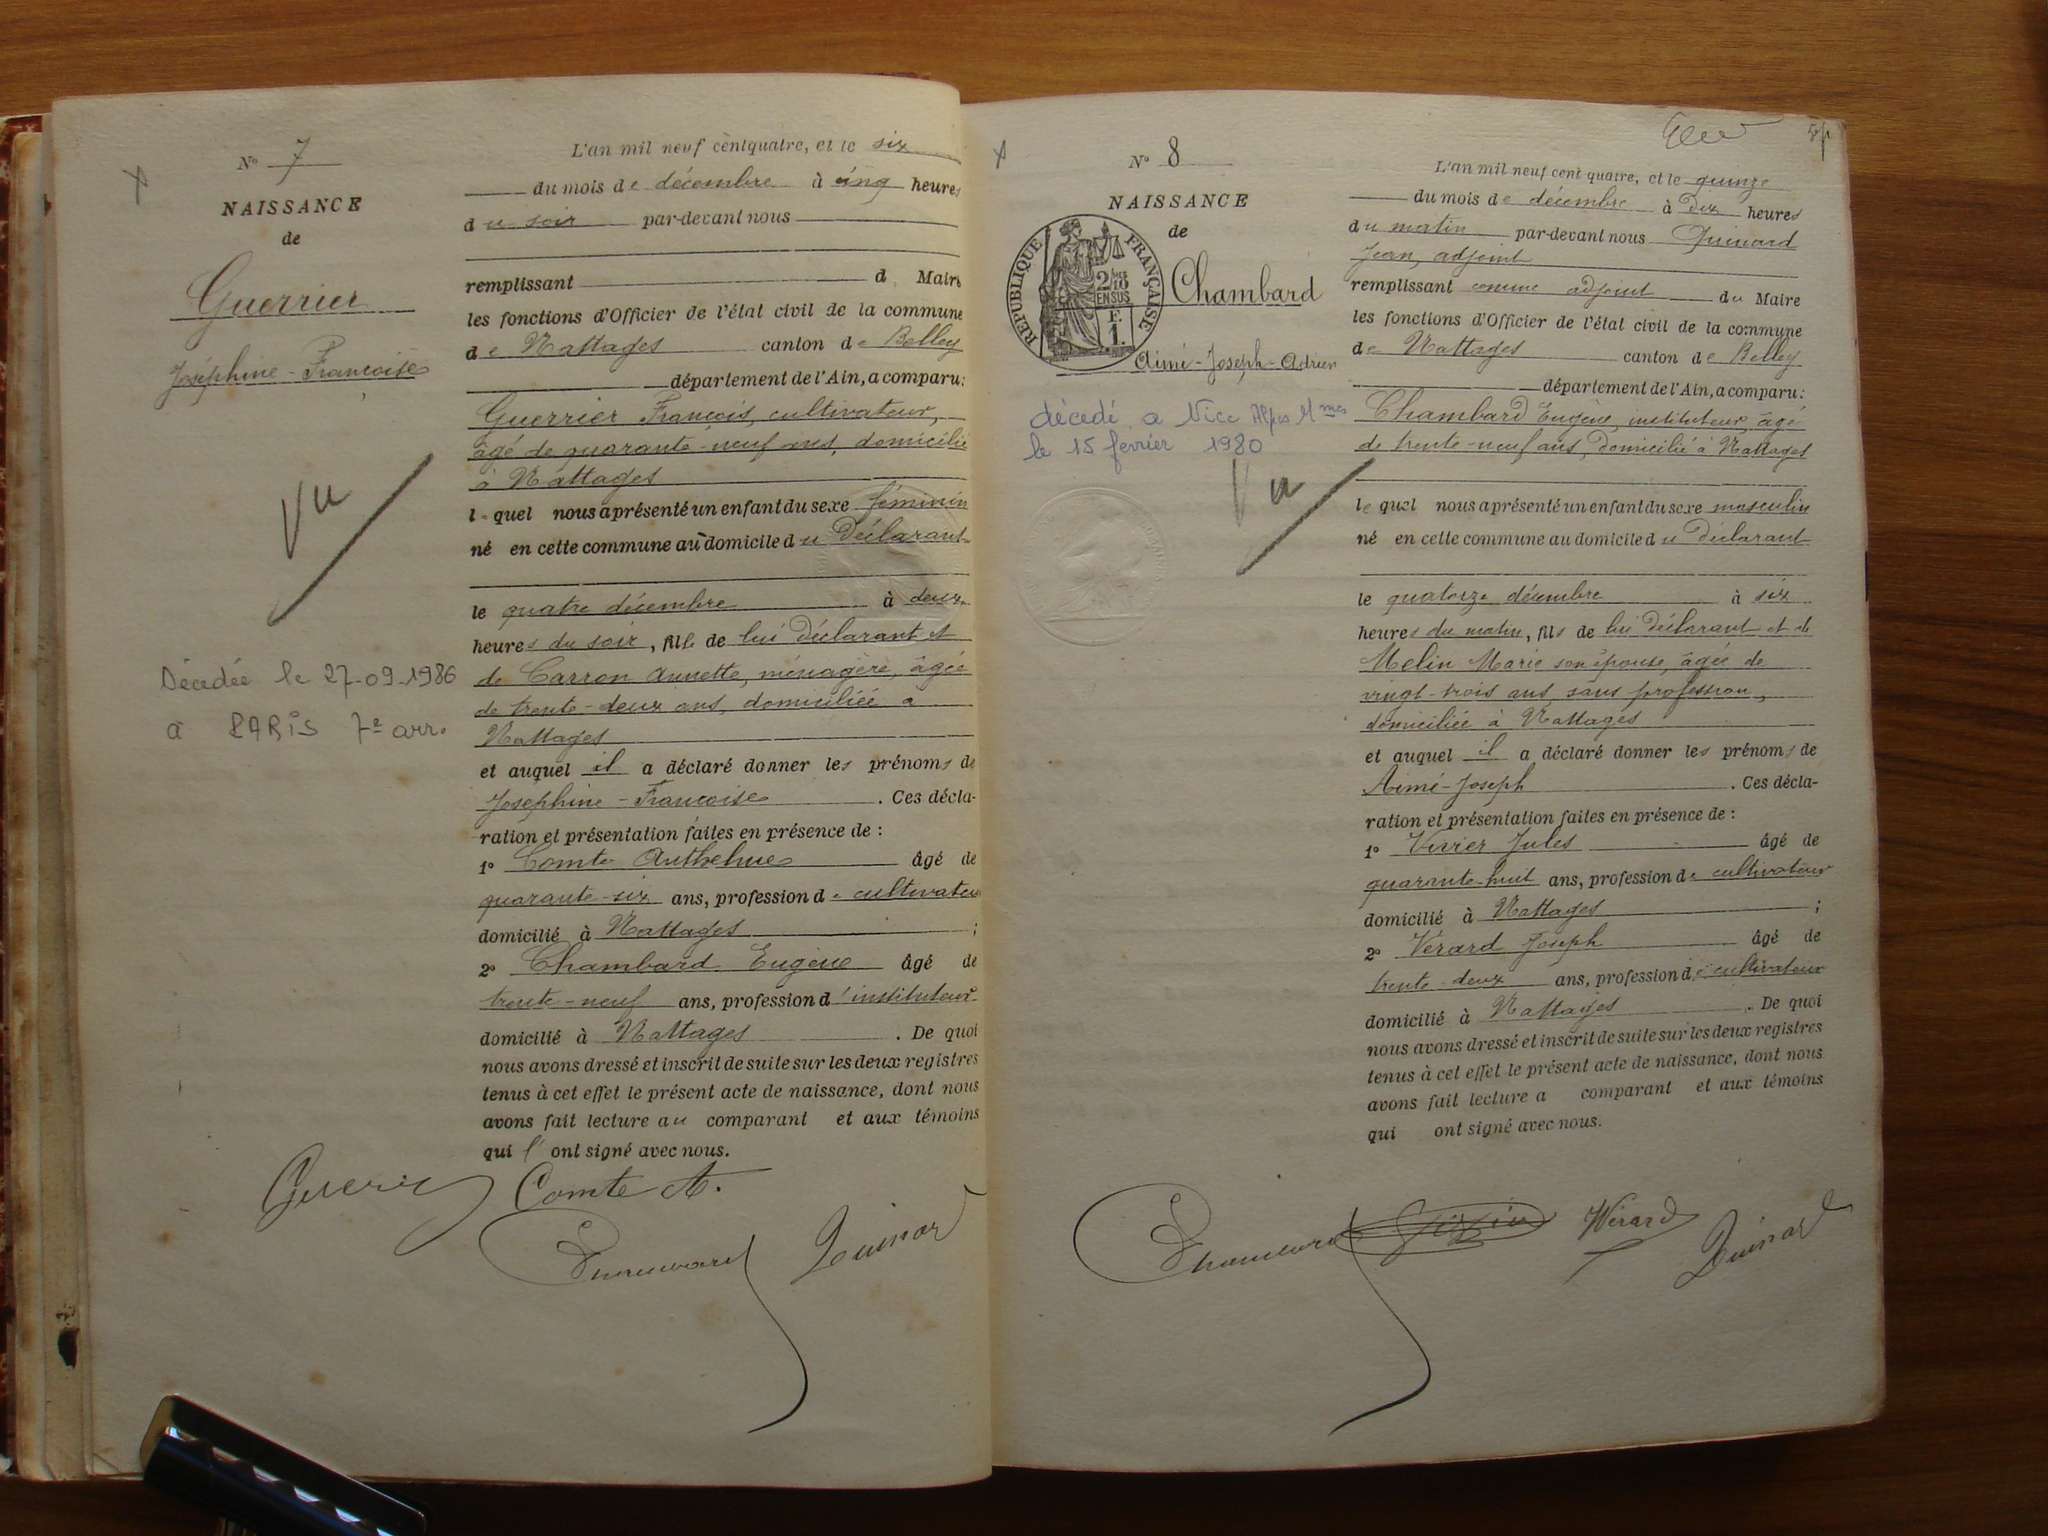 N° 7
NAISSANCE
de
Guerrier
Joséphine-Françoise
Vu
Décédée le 27-09-1986
à PARIS 7e arr.
L'an mil neuf cent quatre, et le six
du mois de décembre à cinq heures
du soir par-devant nous
remplissant d Maire
les fonctions d'Officier de l'état civil de la commune
de Nattages canton de Belley
département de l'Ain, a comparu:
Guerrier François, cultivateur,
âgé de quarante-neuf ans, domicilié
à Nattages
lequel nous a présenté un enfant du sexe féminin
né en cette commune au domicile du Déclarant
le quatre décembre à deux
heures du soir, fille de lui Déclarant et
de Carron Annette, ménagère, âgée
de trente-deux ans, domiciliée à
Nattages
et auquel il a déclaré donner les prénoms de
Josephine-Francoise. Ces décla-
ration et présentation faites en présence de:
1° Comte Anthelme âgé de
quarante-six ans, profession de cultivateur
domicilié à Nattages;
2° Chambard Eugène âgé de
trente-neuf ans, profession d'instituteur
domicilié à Nattages. De quoi
nous avons dressé et inscrit de suite sur les deux registres
tenus à cet effet le présent acte de naissance, dont nous
avons fait lecture au comparant et aux témoins
qui l'ont signé avec nous.
Guerrier Comte A.
Chambard Quinard
N° 8
NAISSANCE
de
RÉPUBLIQUE FRANÇAISE
2/10
EN SUS
F.
1.
Chambard
Aimé-Joseph-Adrien
décédé à Nice Alpes Mmes
le 15 fevrier 1980
Vu
L'an mil neuf cent quatre, et le quinze
du mois de décembre à Dix heures
du matin par-devant nous Quinard
Jean, adjoint
remplissant comme adjoint du Maire
les fonctions d'Officier de l'état civil de la commune
de Nattages canton de Belley
département de l'Ain, a comparu:
Chambard Eugène, instituteur, âgé
de trente-neuf ans, Domicilié à Nattages
lequel nous a présenté un enfant du sexe masculin
né en cette commune au domicile du Déclarant
le quatorze décembre à six
heures du matin, fils de lui Déclarant et de
Melin Marie son épouse, âgée de
vingt-trois ans, sans profession,
domiciliée à Nattages
et auquel il a déclaré donner les prénoms de
Aimé-Joseph. Ces décla-
ration et présentation faites en présence de:
1° Vivier Jules âgé de
quarante-huit ans, profession de cultivateur
domicilié à Nattages;
2° Vérard Joseph âgé de
trente-deux ans, profession de cultivateur
domicilié à Nattages. De quoi
nous avons dressé et inscrit de suite sur les deux registres
tenus à cet effet le présent acte de naissance, dont nous
avons fait lecture a comparant et aux témoins
qui ont signé avec nous.
Chambard Vivier Wérard Quinard